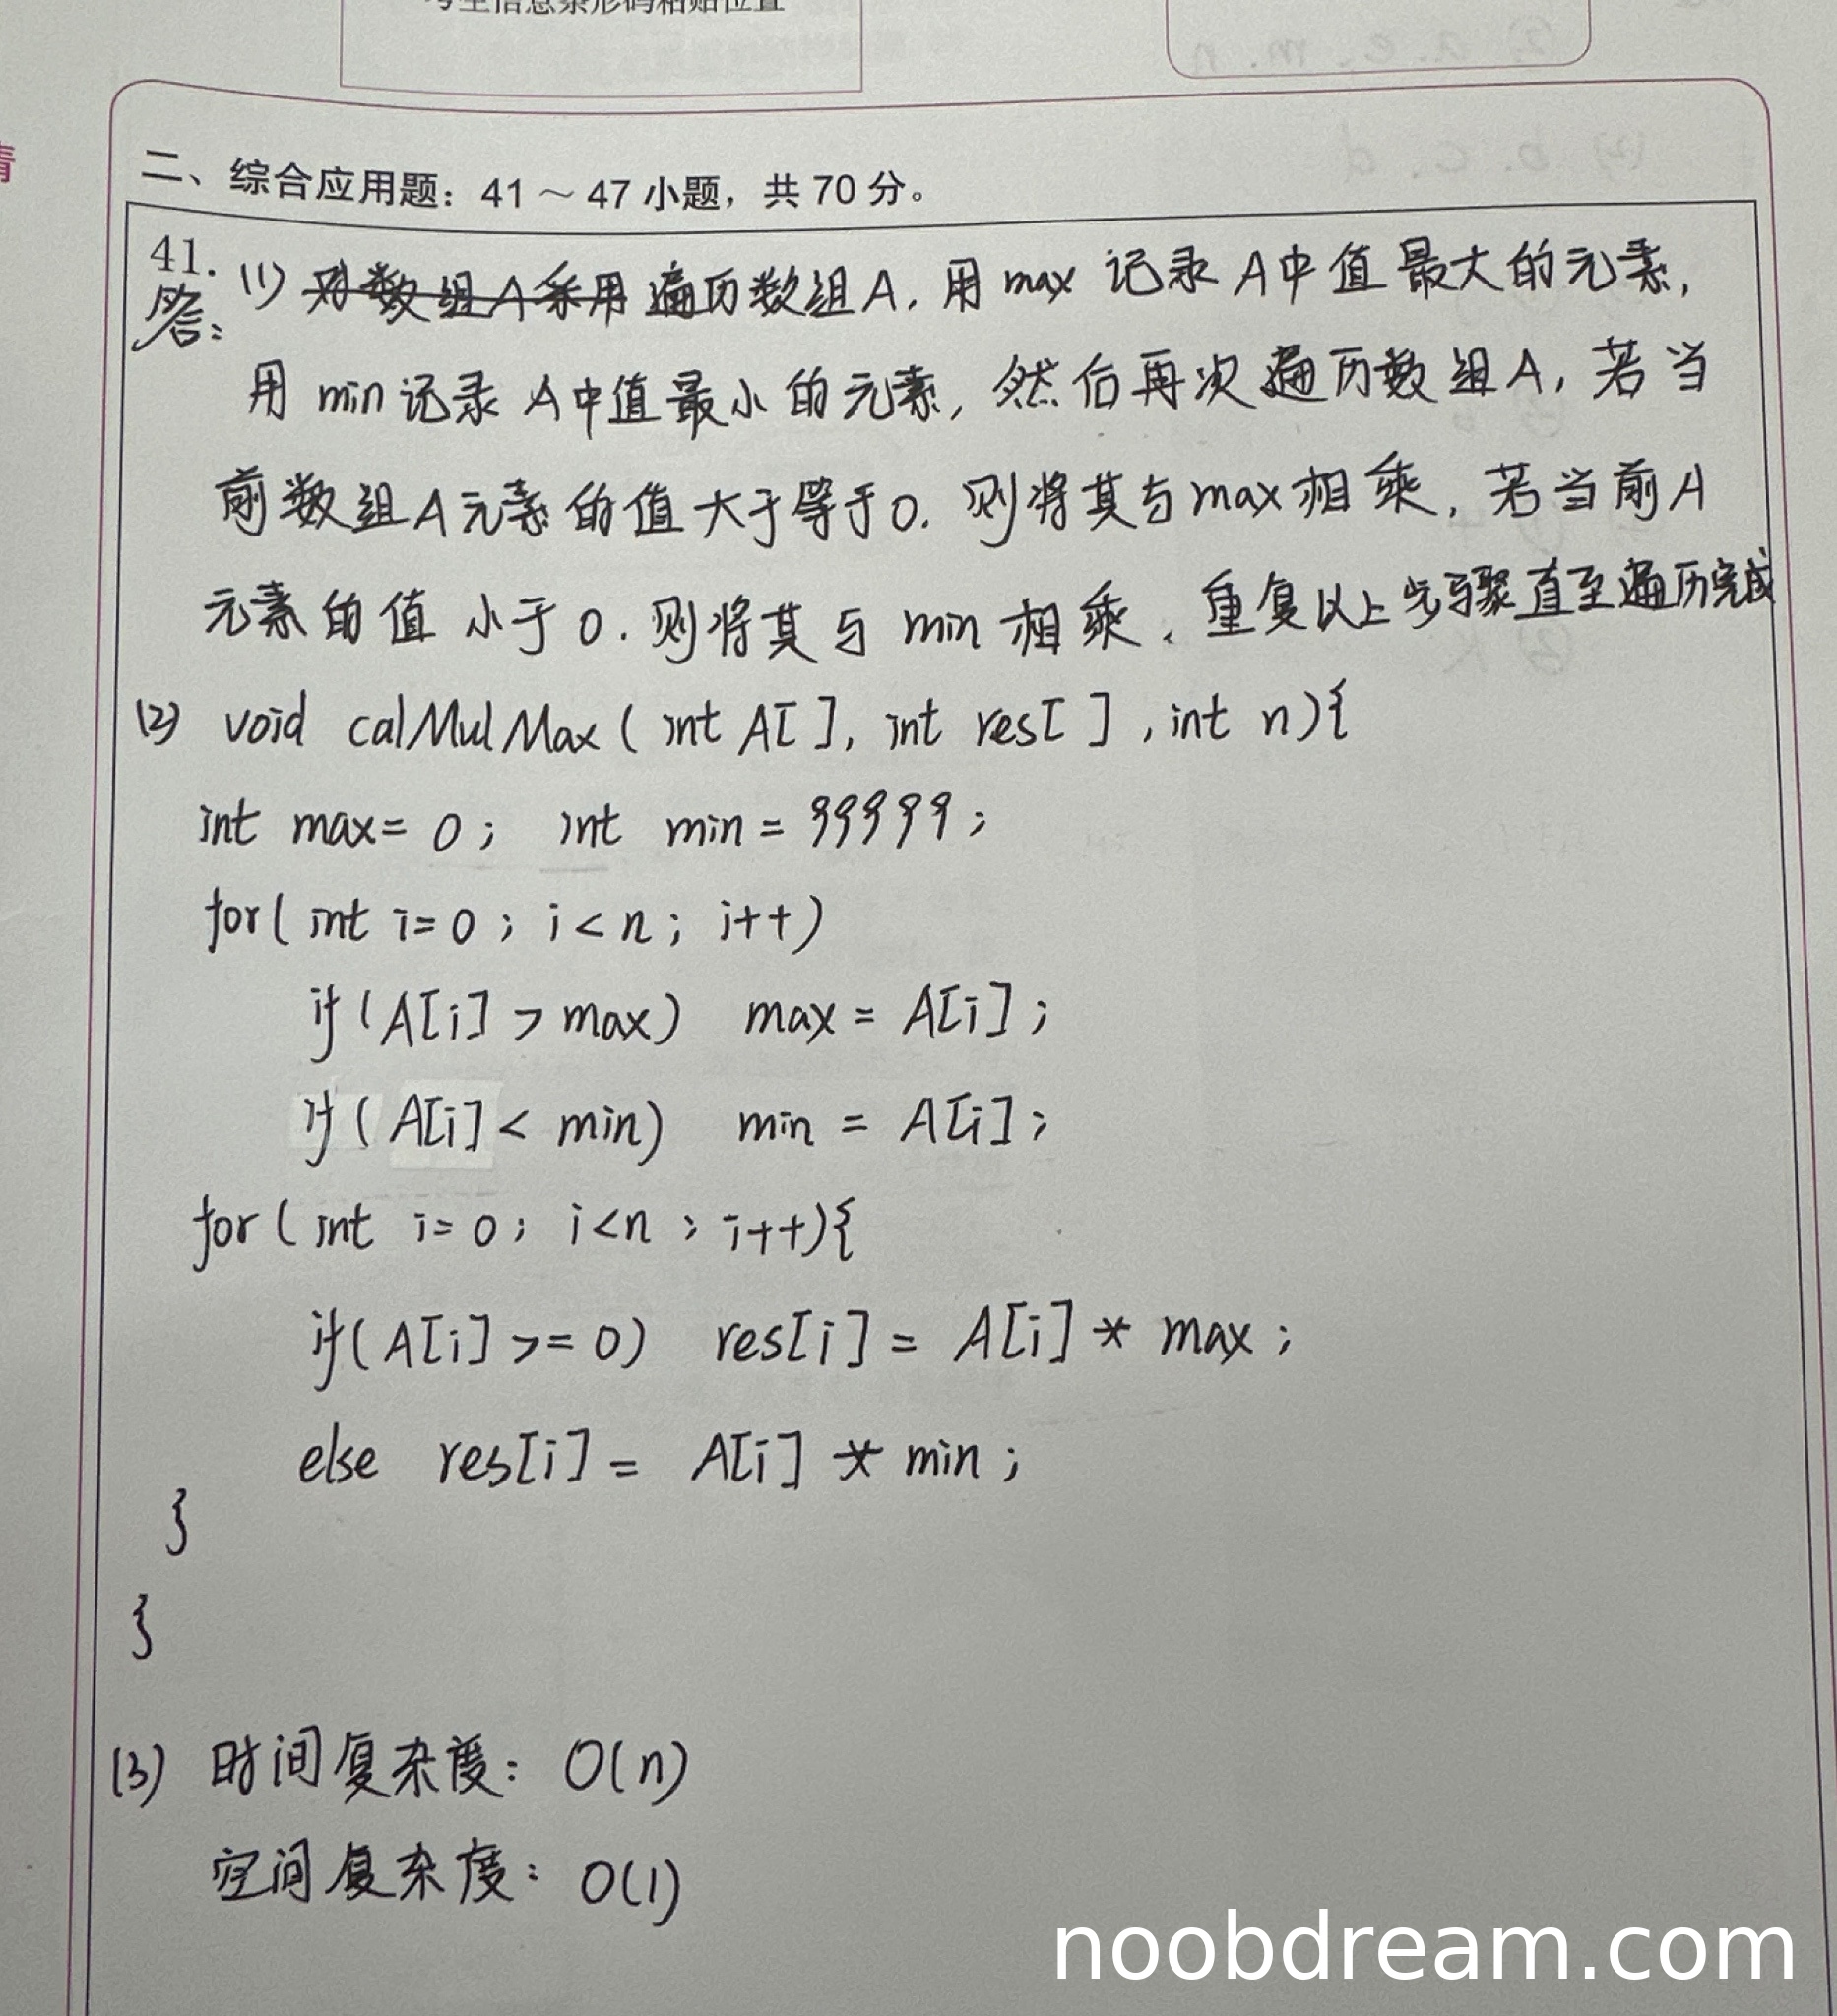 考生信息条形码粘贴位置
二、综合应用题：41～47 小题，共 70 分。
41. (1) 对数组A采用 遍历数组A，用 max 记录 A中值最大的元素，
答：
用 min 记录 A中值最小的元素，然后再次遍历数组A，若当
前数组A元素的值大于等于0，则将其与max相乘，若当前A
元素的值小于0，则将其与 min 相乘，重复以上步骤直至遍历完成
(2) void calMulMax ( int A[ ], int res[ ] , int n){
int max= 0; int min = 99999;
for( int i=0 ; i<n ; i++)
if (A[i] > max) max = A[i] ;
if (A[i] < min) min = A[i];
for ( int i=0; i<n ; i++){
if(A[i] >= 0) res[i] = A[i] * max ;
else res[i] = A[i] * min ;
}
}
(3) 时间复杂度：O(n)
空间复杂度：O(1)
noobdream.com